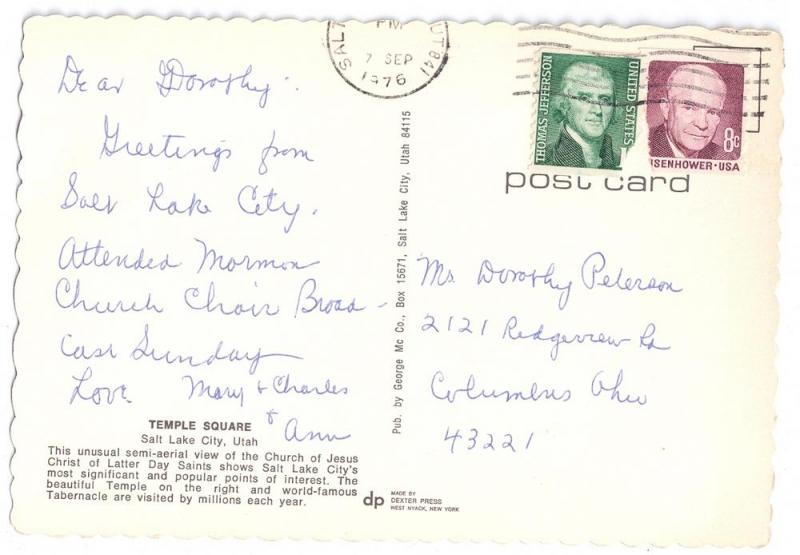 Dear Dorothy:
Greetings from
Salt Lake City.
Attended Mormon
Church Choir Broad-
cast Sunday
Love. Mary & Charles
& Ann
TEMPLE SQUARE
Salt Lake City, Utah
This unusual semi-aerial view of the Church of Jesus
Christ of Latter Day Saints shows Salt Lake City's
most significant and popular points of interest. The
beautiful Temple on the right and world-famous
Tabernacle are visited by millions each year.
Pub. by George Mc Co., Box 15671, Salt Lake City, Utah 84115
dp
MADE BY
DEXTER PRESS
WEST NYACK, NEW YORK
SALT
UT 841
PM
7 SEP
1976
THOMAS JEFFERSON
UNITED STATES
8c
EISENHOWER·USA
post card
Ms. Dorothy Peterson
2121 Ridgeview Rd
Columbus Ohio
43221